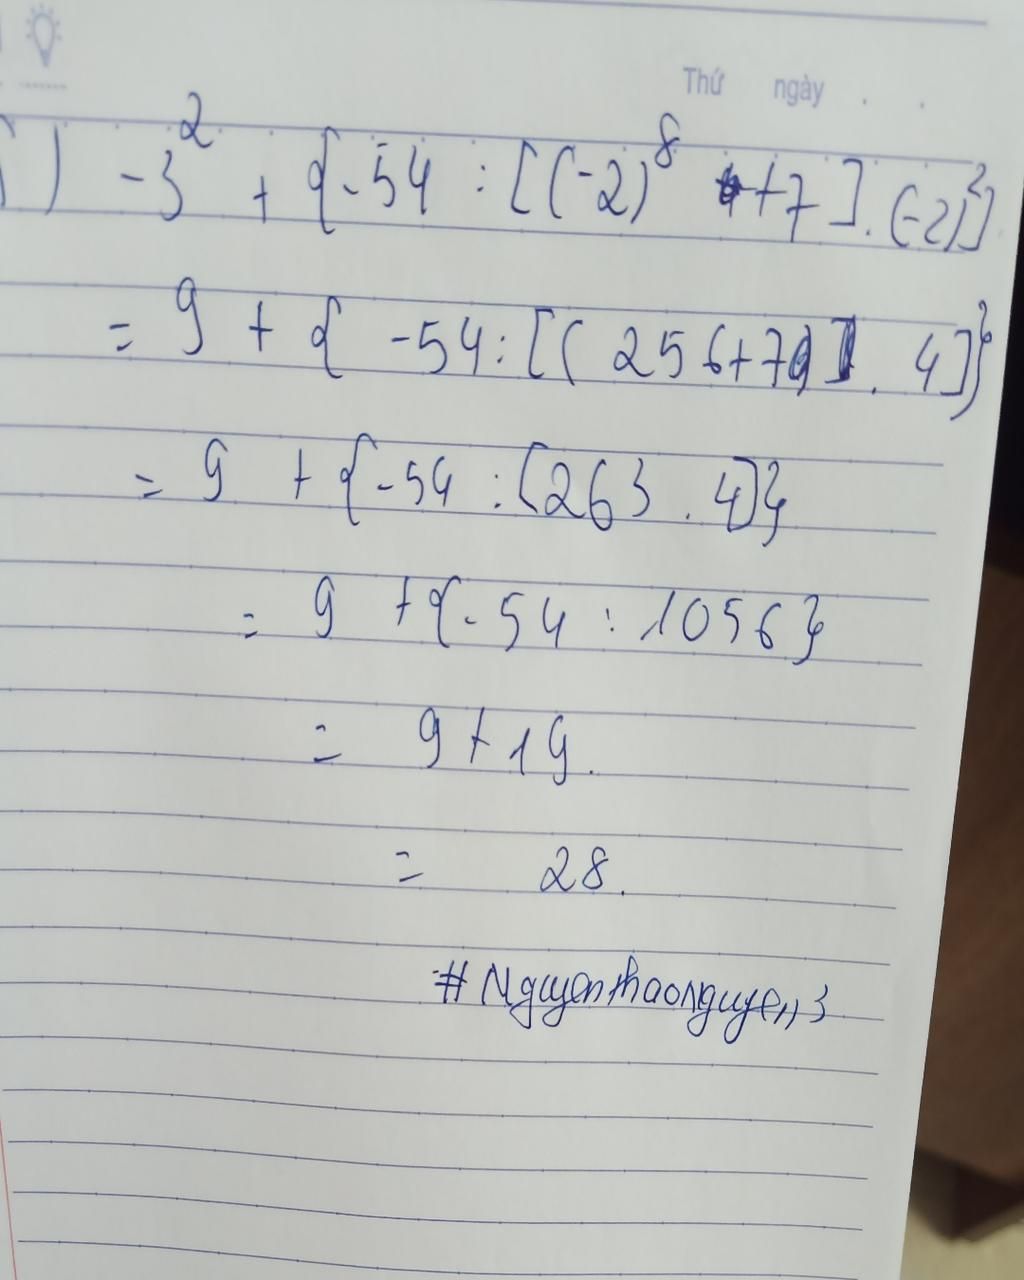 Thứ ngày . .
) -3² + {-54 : [(-2)⁸ +7] . (-2)²}
= 9 + { -54 : [( 256+7)] . 4]}
= 9 + {-54 : [263 . 4]}
= 9 + {-54 : 1056}
= 9 + 19.
= 28.
# Nguyenthaonguyen,,3